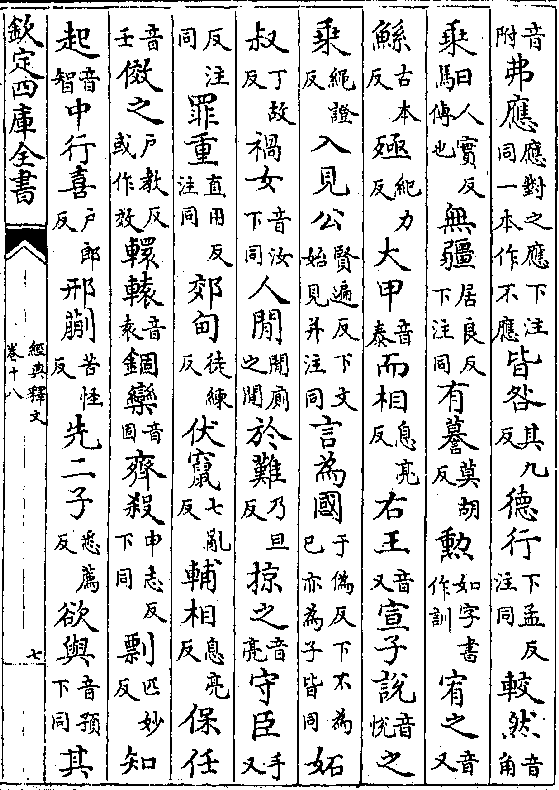 音附弗應應對之應下注同一本作不應皆咎其九反德行下孟反注同較然音角
乗馹人實反傅也無疆居良反下注同有謩莫胡反勲如字書作訓宥之音又
鯀古本反殛紀力反大甲音泰而相息亮反右王音又宣子說音悅之
乗繩證反入見公賢遍反下文始見并注同言為國于偽反下不為已亦為子皆同妬
叔丁故反禍女音汝下同人閒閒廁之閒於難乃旦反掠之音亮守臣手又
反注同罪重直用反注同郊甸徒練反伏竄七亂反輔相息亮反保任
音壬傚之戸教反或作效轘轅音袁錮欒音固齊殺申志反下同剽匹妙反知
起音智中行喜戸郎反邢蒯苦怪反先二子悉薦反欲與音預下同其
欽定四庫全書
經典釋文
卷十八
七